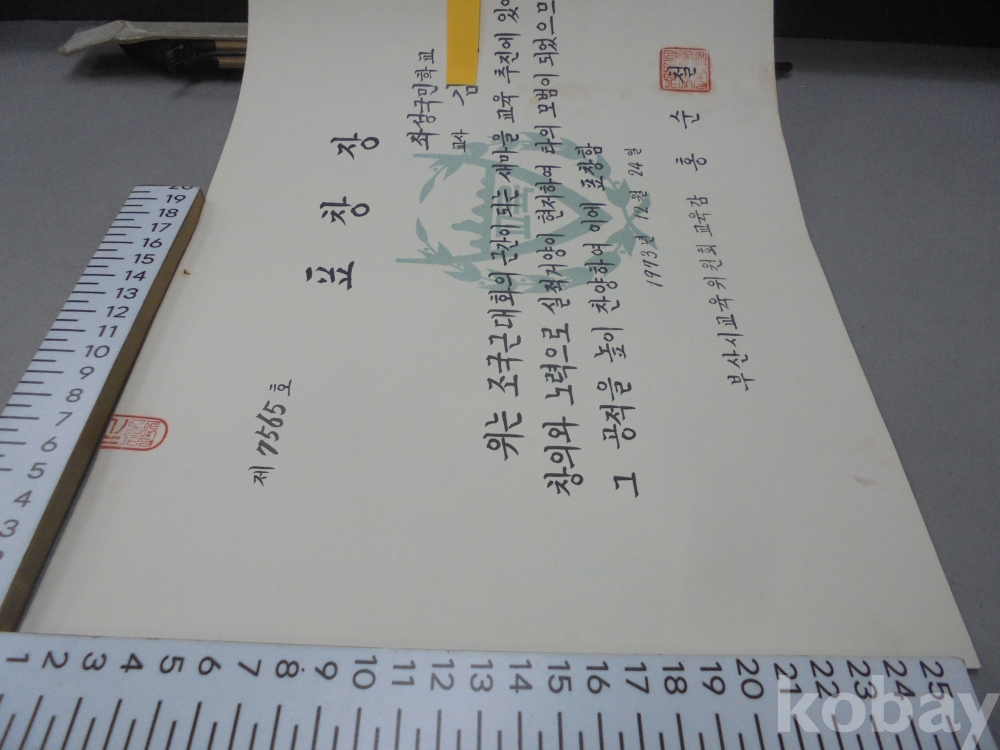 제 7565 호
표 창 장
좌상국민학교
교사 김
위는 조국근대화의 근간이 되는 새마을 교육 추진에 있어
창의와 노력으로 실적거양이 현저하여 타의 모범이 되었으므
그 공적을 높이 찬양하여 이에 표창함
1973년 12월 24일
부산시교육위원회 교육감 홍 순 철
20
19
18
17
16
15
14
13
12
11
10
9
8
7
6
5
4
3
1 2 3 4 5 6 7 8 9 10 11 12 13 14 15 16 17 18 19 20 21 22 23 24 25
kobay